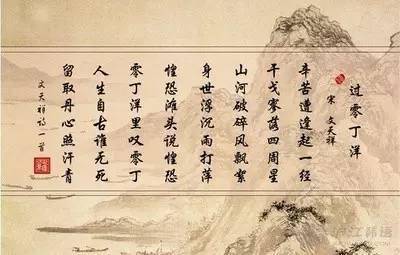 过零丁洋
宋 文天祥
辛苦遭逢起一经
干戈寥落四周星
山河破碎风飘絮
身世浮沉雨打萍
惶恐滩头说惶恐
零丁洋里叹零丁
人生自古谁无死
留取丹心照汗青
文天祥诗一首
沪江韩语